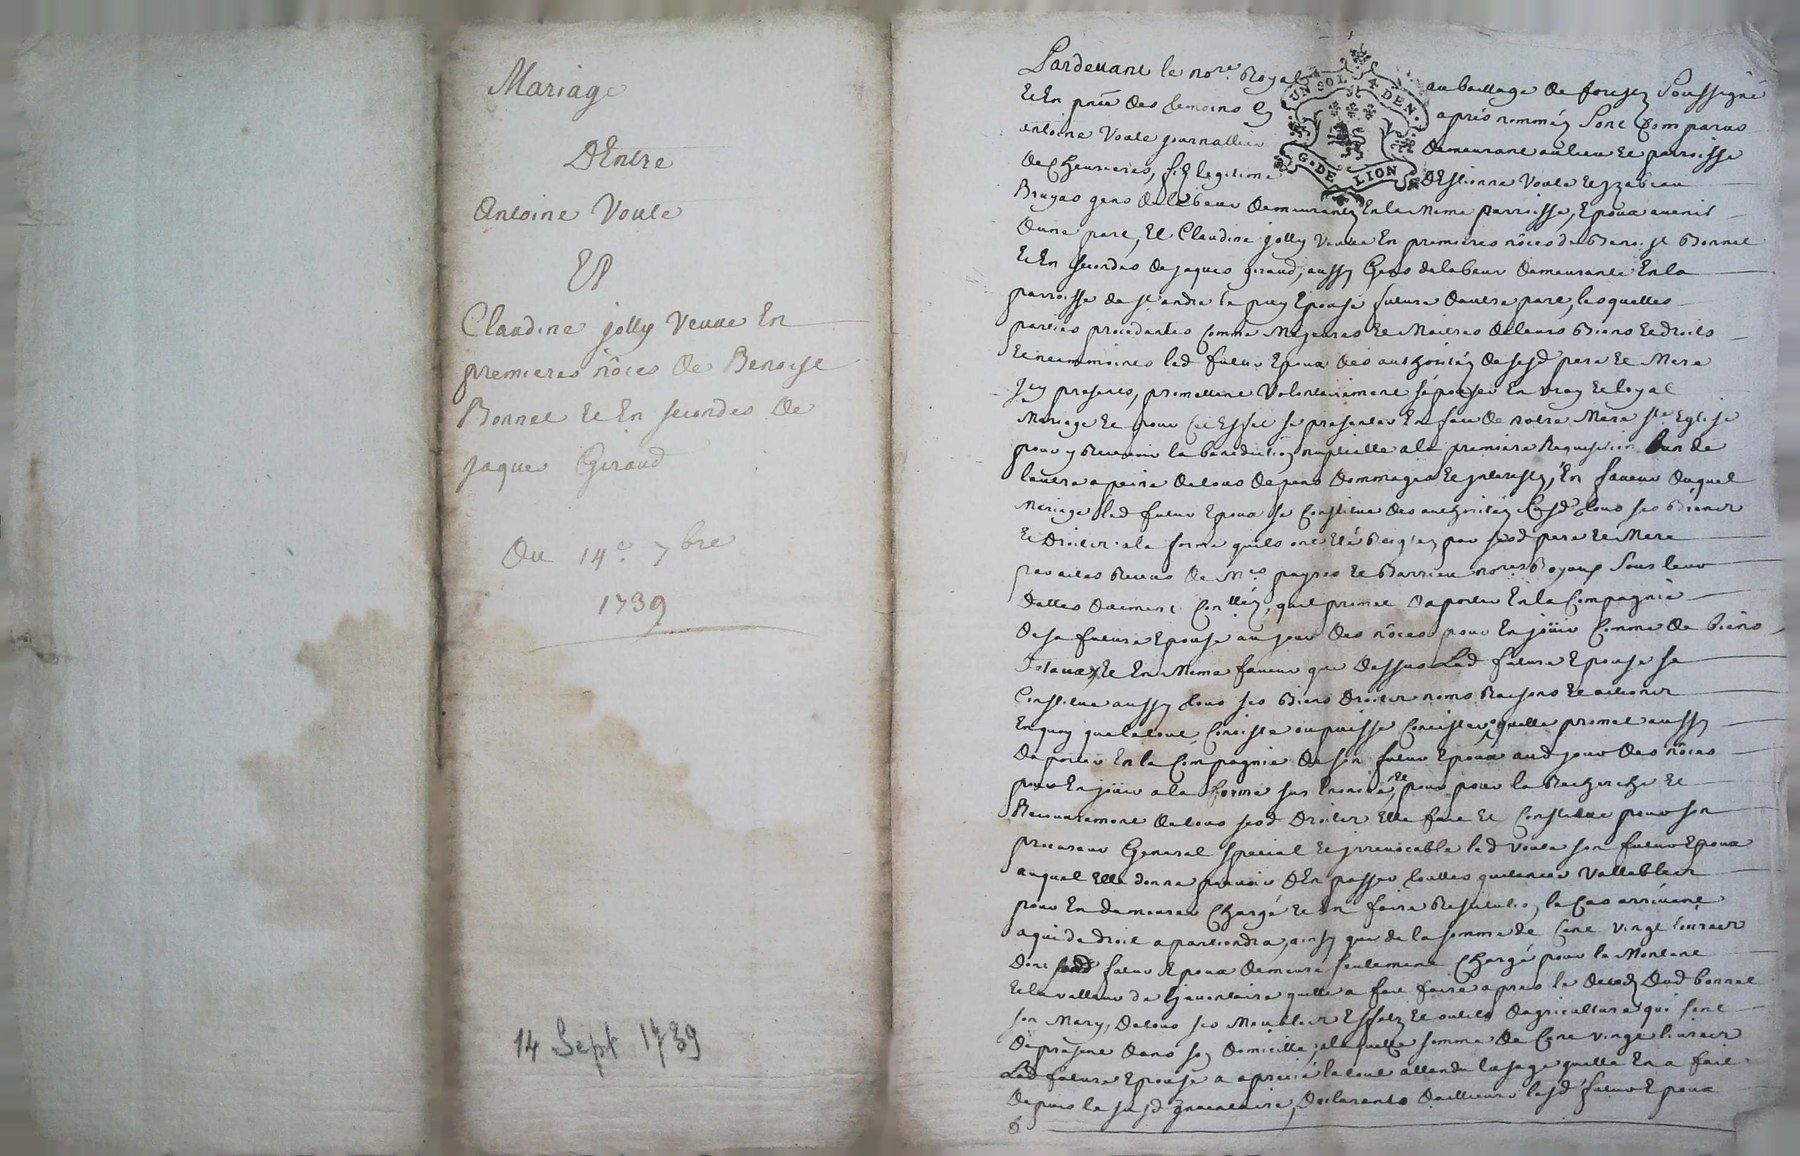 Mariage
DEntre
Antoine Voute
Et
Claudine jolly Veuve En
premieres nôces de Benoist
Bonnet et En secondes de
jaque Giraud
Du 14e 7bre
1739
14 Sept 1739
UN SOL 4 DEN
G. DE LION
Pardevant le nore Royal au baillage de forestz Soussigné
Et En pnce des temoins Cy aprés nommés Sont Comparus
antoine Voute journallier demeurant au lieu et parroisse
de Chevrieres, fils legitime dEstienne Voute et yzabeau
Bruyas gens de labeur demeurantz En la meme parroisse, Epoux avenir
dune part, Et Claudine jolly veuve En premieres nôces de Benoist Bonnet
Et En secondes de jaques giraud, aussy Gens de labeur demeurante En la
parroisse de st andré le puy Epouse future dautre part, lesquelles
parties procedantes comme Majeures et Maitres de leurs Biens et droits
Et neanmoins led futur Epoux des authorités de sesd pere et Mere
jcy presents, promettent Volontairement sépouser En vray et loyal
Mariage Et pour Cet Effet se presenter En face de notre Mere ste Eglise
pour y Recevoir la benediction nuptialle a la premiere Requisition lun de
lautre a peine de tous depens dommages et jnterestz, En faveur duquel
Mariage led futur Epoux se Constitue des authorités tous ses Biens
Et Droits a la forme quils ont été par sesd pere et Mere
par actes Recus de Mes payres et Barrieu nores Royaux sous leur
dattes quil promet dapporter En la Compagnie
de sa future Epouse au jour des nôces pour En joüir Comme de biens
dotaux, Et En Meme faveur que dessus Lad future Epouse se
Constitue aussy tous ses Biens Droits noms Raisons et actions
En quoy que le tout Consiste ou puisse Consister quelle promet aussy
dapporter En la Compagnie de son futur Epoux aud jour des nôces
pour En joüir a la forme sus Enoncé, Et pour la Recherche et
Recouvrement de tous sesd Droits Elle fait et Constitue pour son
procureur General special et jrrevocable led Voute son futur Epoux
auquel Elle donne pouvoir dEn passer touttes quitances vallables
pour En demeurer Chargé et En faire Restitution le Cas arrivant
a qui de droit apartiendra, ainsy que de la somme de Cent vingt livres
dont led futur Epoux demeure seulement Chargé pour le Montant
Et la valleur de linventaire quelle a fait faire apres le decedz dud bonnet
son Mary, de tous ses Meubles Effetz et outils dagriculture qui sont
de present dans son domicille, a laquelle somme de Cent vingt livres
Lad future Epouse a aprecié le tout attendu lusage quelle En a fait
depuis le susd jnventaire, declarants dailleurs lesd futur Epoux